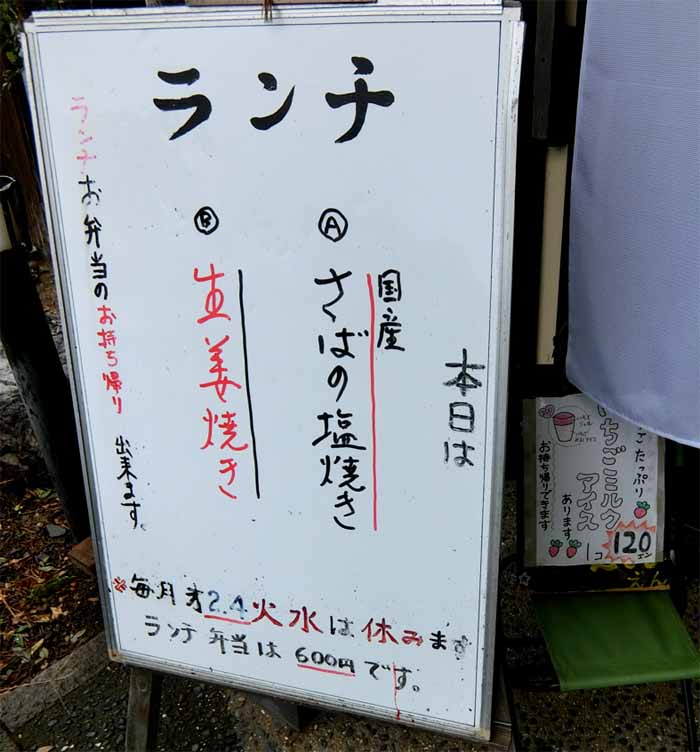 ランチ
本日は
Ⓐ
国産
さばの塩焼き
Ⓑ
生姜焼き
ランチお弁当のお持ち帰り出来ます。
※毎月才2.4火水は休みます
ランチ弁当は600円です。
たっぷり
いちごミルク
アイス
あります
お持ち帰りできます
1コ120エン